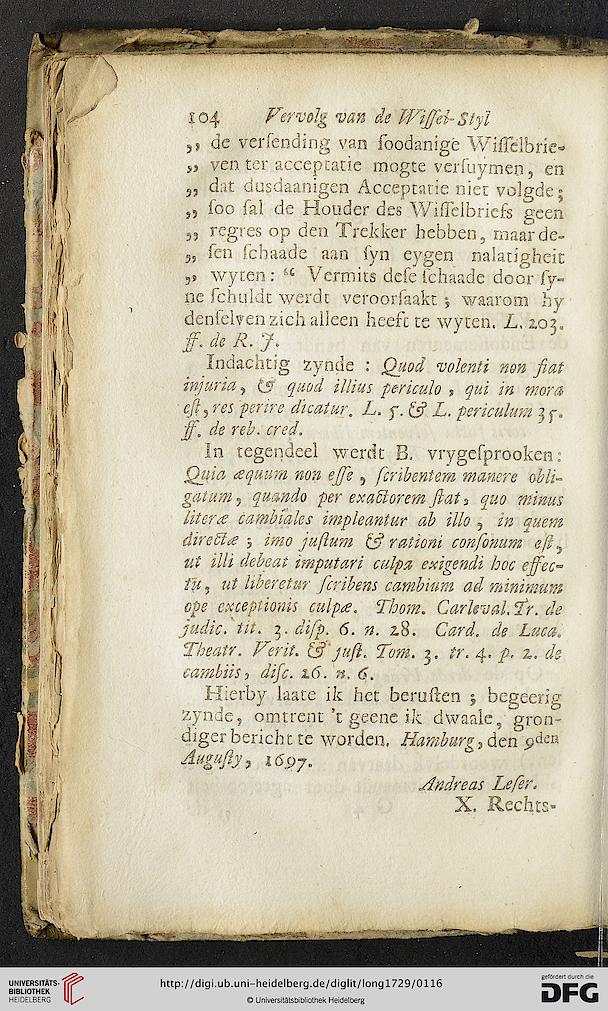 104 Vervolg van de Wiſſel-Styl
,, de verſending van ſoodanige Wiſſelbrie-
,, ven ter acceptatie mogte verſuymen, en
,, dat dusdaanigen Acceptatie niet volgde;
,, ſoo ſal de Houder des Wiſſelbriefs geen
,, regres op den Trekker hebben, maar de-
,, ſen ſchaade aan ſyn eygen nalatigheit
,, wyten: “ Vermits deſe ſchaade door ſy-
ne ſchuldt werdt veroorſaakt; waarom hy
denſelven zich alleen heeft te wyten. L. 203.
ff. de R. J.
Indachtig zynde : Quod volenti non fiat
injuria, & quod illius periculo, qui in mora
eſt, res perire dicatur. L. 5. & L. periculum 35.
ff. de reb. cred.
In tegendeel werdt B. vrygeſprooken:
Quia æquum non eſſe, ſcribentem manere obli-
gatum, quando per exactorem ſtat, quo minus
literæ cambiales impleantur ab illo, in quem
directæ; imo juſtum & rationi conſonum eſt,
ut illi debeat imputari culpa exigendi hoc effec-
tu, ut liberetur ſcribens cambium ad minimum
ope exceptionis culpæ. Thom. Carleval. Tr. de
judic. tit. 3. diſp. 6. n. 28. Card. de Luca.
Theatr. Verit. & juſt. Tom. 3. tr. 4. p. 2. de
cambiis, diſc. 26. n. 6.
Hierby laate ik het beruſten; begeerig
zynde, omtrent 't geene ik dwaale, gron-
diger bericht te worden. Hamburg, den 9den
Auguſty, 1697.
Andreas Leſer.
X. Rechts-
UNIVERSITÄTS-
BIBLIOTHEK
HEIDELBERG
http://digi.ub.uni-heidelberg.de/diglit/long1729/0116
© Universitätsbibliothek Heidelberg
gefördert durch die
DFG